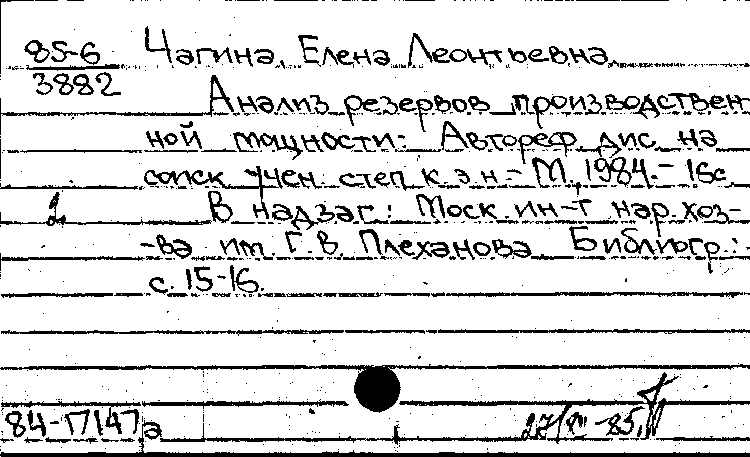 85-6
3882
Чагина, Елена Леонтьевна.
Анализ резервов производствен
ной мощности: Автореф. дис. на
соиск. учен. степ. к. э. н. - М., 1984. - 16 с.
1
В надзаг.: Моск. ин-т нар. хоз-
-ва им. Г. В. Плеханова. Библиогр.:
с. 15-16.
84-17147а